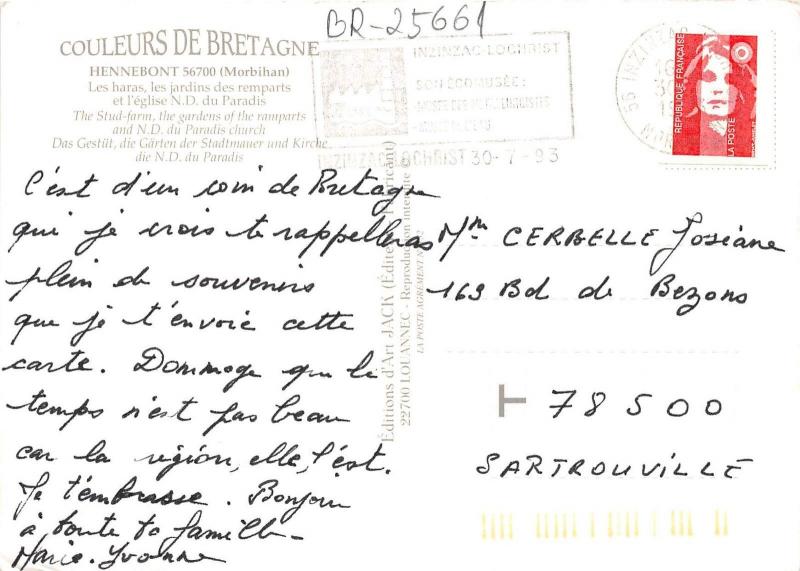 BR-25661
COULEURS DE BRETAGNE
HENNEBONT 56700 (Morbihan)
Les haras, les jardins des remparts
et l'église N.D. du Paradis
The Stud-farm, the gardens of the ramparts
and N.D. du Paradis church
Das Gestüt, die Gärten der Stadtmauer und Kirche
die N.D. du Paradis
INZINZAC-LOCHRIST
SON ÉCOMUSÉE :
INZINZAC LOCHRIST 30-7-93
56 INZINZAC
RÉPUBLIQUE FRANÇAISE
LA POSTE
C'est d'un coin de Bretagne
qui je crois te rappelleras
plein de souvenirs
que je t'envoie cette
carte. Dommage que le
temps n'est pas beau
car la région, elle, l'est.
Je t'embrasse. Bonjour
à toute ta famille-
Marie-Yvonne
Éditions d'Art JACK
22700 LOUANNEC - Reproduction
LA POSTE AGREMENT N°
Mm CERBELLE Josiane
163 Bd de Bezons
78500
SARTROUVILLE